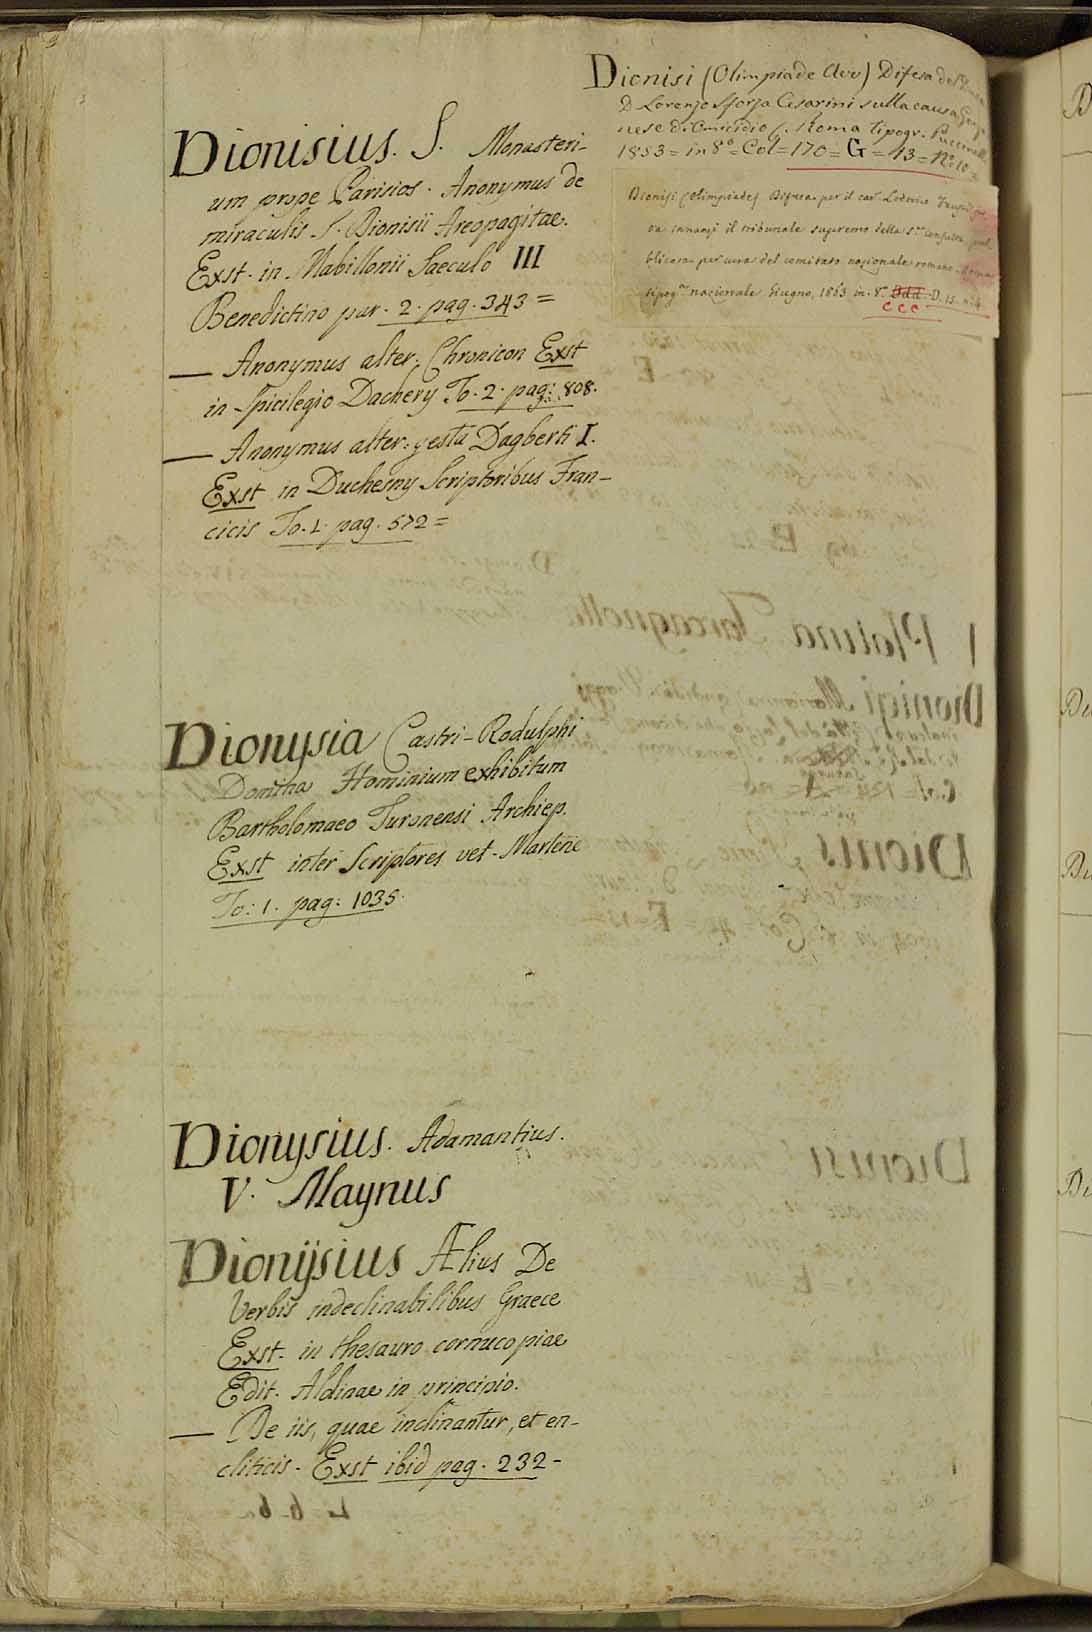 Dionisius. S. Monasteri-
um prope Parisios. Anonymus de
miraculis S. Dionisii Areopagitae.
Exst. in Mabillonii Saeculo III
Benedictino par. 2. pag. 343 =
— Anonymus alter. Chronicon Exst
in Spicilegio Dachery To. 2. pag: 808.
— Anonymus alter. gesta Dagberti I.
Exst in Duchesny Scriptoribus Fran-
cicis To. 1. pag. 572 =
Dionysia Castri-Rodulphi
Domina Hominium exhibitum
Bartholomaeo Turonensi Archiep.
Exst inter Scriptores vet. Martene
To: 1. pag: 1035.
Dionysius. Adamantius.
V. Magnus
Dionijsius Ælius De
Verbis indeclinabilibus Graece
Exst. in thesauro cornucopiae
Edit. Aldinae in principio.
— De iis, quae inclinantur, et en-
cliticis. Exst ibid pag. 232 -
Dionisi (Olimpiade Avv) Difesa del
D Lorenzo Sforza Cesarini sulla causa
nese di Omicidio Roma tipogr. Puccinelli
1853 = in 8° = Col = 170 = G = 13 = N° 10 =
Dionisi (Olimpiade) Difesa per il cav. Lodovico
va innanzi il tribunale supremo della S. consulta, pub
blicata per cura del comitato nazionale romano. Roma
tipog. nazionale Giugno, 1863 in. 8.° Ddd. D. 15. n. 4.
CCC